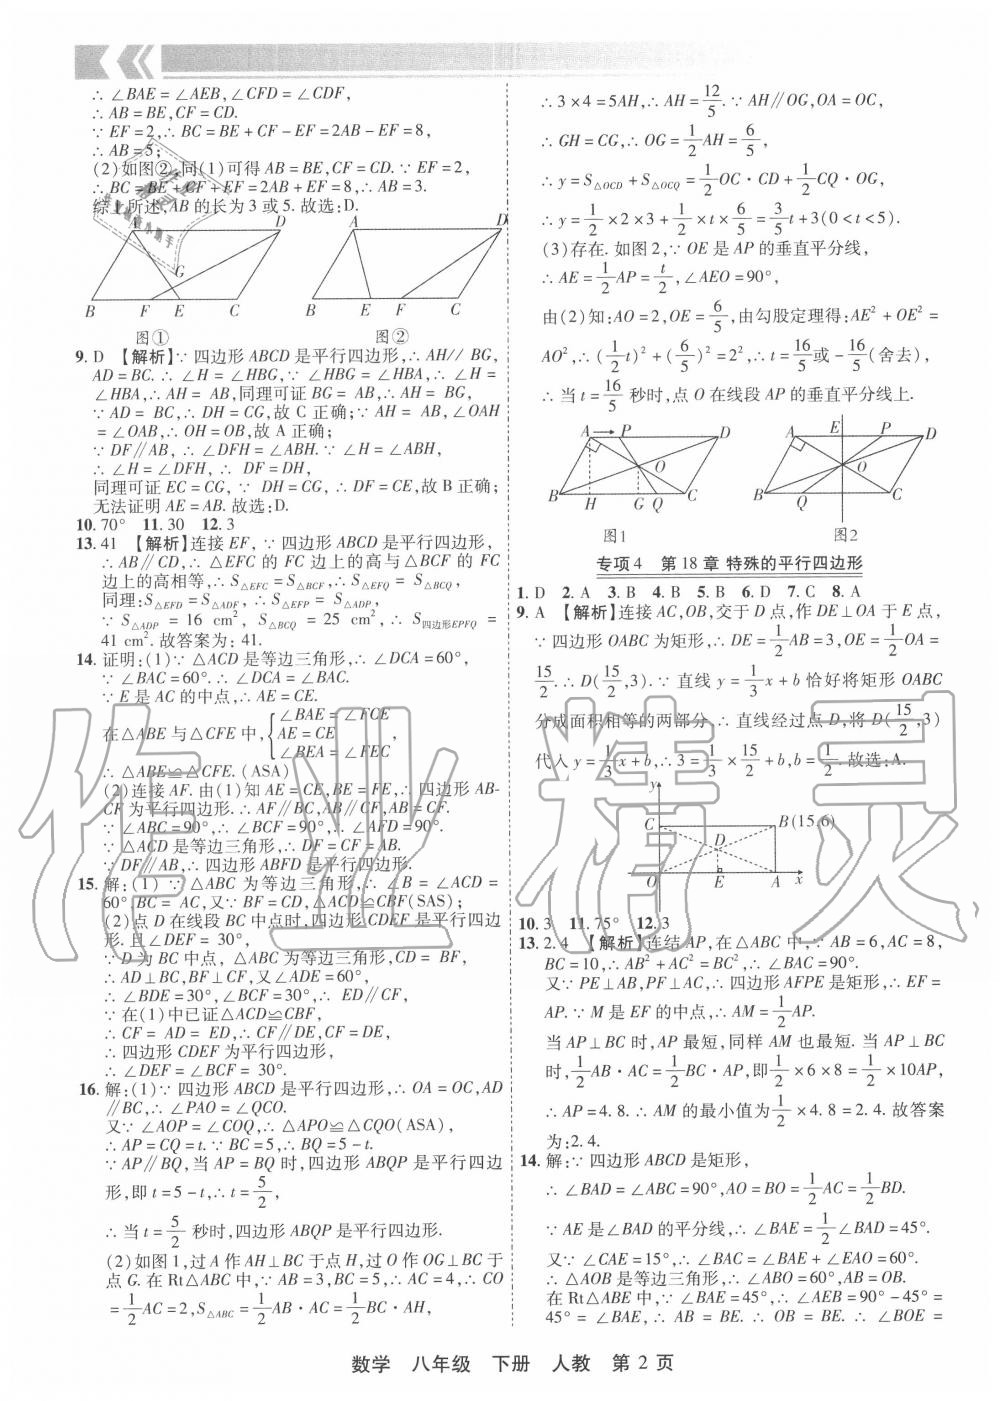 ∴ ∠BAE = ∠AEB,∠CFD = ∠CDF,
∴ AB = BE,CF = CD.
∵ EF = 2,∴ BC = BE + CF - EF = 2AB - EF = 8,
∴ AB = 5;
(2)如图②,同(1)可得 AB = BE,CF = CD. ∵ EF = 2,
∴ BC = BE + CF + EF = 2AB + EF = 8,∴ AB = 3.
综上所述,AB 的长为 3 或 5. 故选:D.
A D A D
G
B F E C B E F C
图① 图②
9. D 【解析】∵ 四边形 ABCD 是平行四边形,∴ AH// BG,
AD = BC. ∴ ∠H = ∠HBG,∵ ∠HBG = ∠HBA,∴ ∠H =
∠HBA,∴ AH = AB,同理可证 BG = AB,∴ AH = BG,
∵ AD = BC,∴ DH = CG,故 C 正确;∵ AH = AB,∠OAH
= ∠OAB,∴ OH = OB,故 A 正确;
∵ DF∥AB, ∴ ∠DFH = ∠ABH. ∵ ∠H = ∠ABH,
∴ ∠H = ∠DFH, ∴ DF = DH,
同理可证 EC = CG, ∵ DH = CG, ∴ DF = CE,故 B 正确;
无法证明 AE = AB. 故选:D.
10. 70° 11. 30 12. 3
13. 41 【解析】连接 EF, ∵ 四边形 ABCD 是平行四边形,
∴ AB∥CD,∴ △EFC 的 FC 边上的高与△BCF 的 FC
边上的高相等,∴ S△EFC = S△BCF,∴ S△EFQ = S△BCQ,
同理:S△EFD = S△ADF, ∴ S△EFP = S△ADP,
∵ S△ADP = 16 cm², S△BCQ = 25 cm²,∴ S四边形EPFQ =
41 cm². 故答案为: 41.
14. 证明:(1)∵ △ACD 是等边三角形,∴ ∠DCA = 60°,
∵ ∠BAC = 60°. ∴ ∠DCA = ∠BAC.
∵ E 是 AC 的中点,∴ AE = CE.
在△ABE 与△CFE 中,{∠BAE = ∠FCE
AE = CE ,
∠BEA = ∠FEC
∴ △ABE≌△CFE. (ASA)
(2)连接 AF. 由(1)知 AE = CE,BE = FE,∴ 四边形 AB-
CF 为平行四边形. ∴ AF∥BC,AB∥CF,AB = CF.
∵ ∠ABC = 90°,∴ ∠BCF = 90°,∴ ∠AFD = 90°.
∵ △ACD 是等边三角形,∴ DF = CF = AB.
∵ DF∥AB,∴ 四边形 ABFD 是平行四边形.
15. 解:(1) ∵ △ABC 为等边三角形,∴ ∠B = ∠ACD =
60° BC = AC,又∵ BF = CD,△ACD≌CBF(SAS);
(2)点 D 在线段 BC 中点时,四边形 CDEF 是平行四边
形. 且∠DEF = 30°,
∵ D 为 BC 中点, △ABC 为等边三角形,CD = BF,
∴ AD⊥BC,BF⊥CF,又∠ADE = 60°,
∴ ∠BDE = 30°,∠BCF = 30°,∴ ED∥CF,
∵ 在(1)中已证△ACD≌CBF,
∴ CF = AD = ED,∴ CF∥DE,CF = DE,
∴ 四边形 CDEF 为平行四边形,
∴ ∠DEF = ∠BCF = 30°.
16. 解:(1)∵ 四边形 ABCD 是平行四边形,∴ OA = OC,AD
∥BC,∴ ∠PAO = ∠QCO.
又∵ ∠AOP = ∠COQ,∴ △APO≌△CQO(ASA),
∴ AP = CQ = t. ∵ BC = 5,∴ BQ = 5 - t.
∵ AP∥BQ,当 AP = BQ 时,四边形 ABQP 是平行四边
形,即 t = 5 - t,∴ t = 5/2,
∴ 当 t = 5/2 秒时,四边形 ABQP 是平行四边形.
(2)如图 1,过 A 作 AH⊥BC 于点 H,过 O 作 OG⊥BC 于
点 G. 在 Rt△ABC 中,∵ AB = 3,BC = 5,∴ AC = 4,∴ CO
= 1/2 AC = 2,S△ABC = 1/2 AB·AC = 1/2 BC·AH,
∴ 3 × 4 = 5AH,∴ AH = 12/5. ∵ AH∥OG,OA = OC,
∴ GH = CG,∴ OG = 1/2 AH = 6/5,
∴ y = S△OCD + S△OCQ = 1/2 OC·CD + 1/2 CQ·OG,
∴ y = 1/2 × 2 × 3 + 1/2 × t × 6/5 = 3/5 t + 3(0 < t < 5).
(3)存在. 如图 2,∵ OE 是 AP 的垂直平分线,
∴ AE = 1/2 AP = t/2,∠AEO = 90°,
由(2)知:AO = 2,OE = 6/5,由勾股定理得:AE² + OE² =
AO²,∴ (1/2 t)² + (6/5)² = 2²,∴ t = 16/5 或 - 16/5(舍去),
∴ 当 t = 16/5 秒时,点 O 在线段 AP 的垂直平分线上.
A P D A E P D
O O
B H G Q C B Q C
图1 图2
专项 4 第 18 章 特殊的平行四边形
1. D 2. A 3. B 4. B 5. B 6. D 7. C 8. A
9. A 【解析】连接 AC,OB,交于 D 点,作 DE⊥OA 于 E 点,
∵ 四边形 OABC 为矩形,∴ DE = 1/2 AB = 3,OE = 1/2 OA =
15/2. ∴ D(15/2,3). ∵ 直线 y = 1/3 x + b 恰好将矩形 OABC
分成面积相等的两部分,∴ 直线经过点 D,将 D(15/2,3)
代入 y = 1/3 x + b,∴ 3 = 1/3 × 15/2 + b,b = 1/2. 故选:A.
y
C B(15,6)
D
O E A x
10. 3 11. 75° 12. 3
13. 2. 4 【解析】连结 AP,在△ABC 中,∵ AB = 6,AC = 8,
BC = 10,∴ AB² + AC² = BC²,∴ ∠BAC = 90°.
又∵ PE⊥AB,PF⊥AC,∴ 四边形 AFPE 是矩形,∴ EF =
AP. ∵ M 是 EF 的中点,∴ AM = 1/2 AP.
当 AP⊥BC 时,AP 最短,同样 AM 也最短. 当 AP⊥BC
时,1/2 AB·AC = 1/2 BC·AP,即 1/2 × 6 × 8 = 1/2 × 10AP,
∴ AP = 4. 8. ∴ AM 的最小值为 1/2 × 4. 8 = 2. 4. 故答案
为:2. 4.
14. 解:∵ 四边形 ABCD 是矩形,
∴ ∠BAD = ∠ABC = 90°,AO = BO = 1/2 AC = 1/2 BD.
∵ AE 是∠BAD 的平分线,∴ ∠BAE = 1/2 ∠BAD = 45°.
又∵ ∠CAE = 15°,∴ ∠BAC = ∠BAE + ∠EAO = 60°.
∴ △AOB 是等边三角形,∴ ∠ABO = 60°,AB = OB.
在 Rt△ABE 中,∵ ∠BAE = 45°,∴ ∠AEB = 90° - 45° =
45° = ∠BAE,∴ AB = BE. ∴ OB = BE. ∴ ∠BOE =
数学 八年级 下册 人教 第 2 页
作业精灵